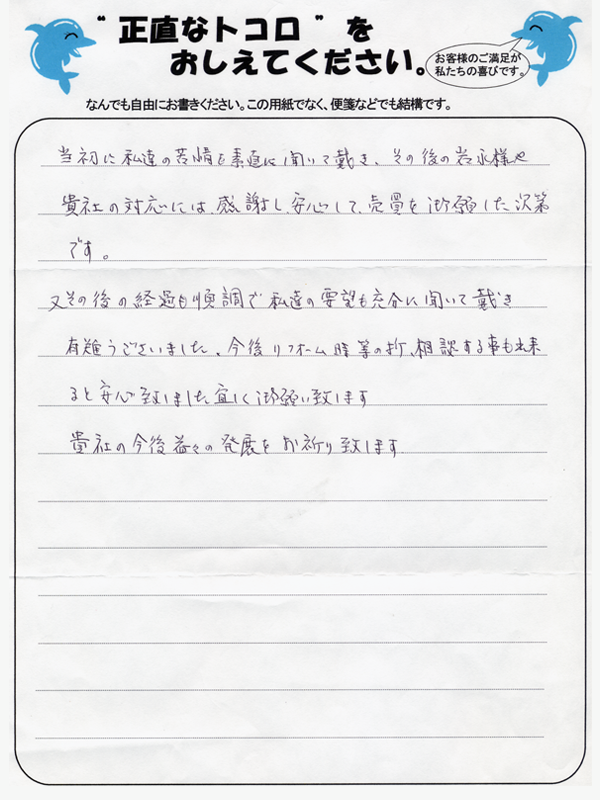 “正直なトコロ”を
おしえてください。
お客様のご満足が
私たちの喜びです。
なんでも自由にお書きください。この用紙でなく、便箋などでも結構です。
当初に私達の苦情を素直に聞いて戴き、その後の岩永様や
貴社の対応には、感謝し、安心して、売買を御願した次第
です。
又その後の経過も順調で私達の要望も充分に聞いて戴き
有難うございました、今後リフォーム時等の折、相談する事も出来
ると安心致しました宜しく御願い致します
貴社の今後益々の発展をお祈り致します